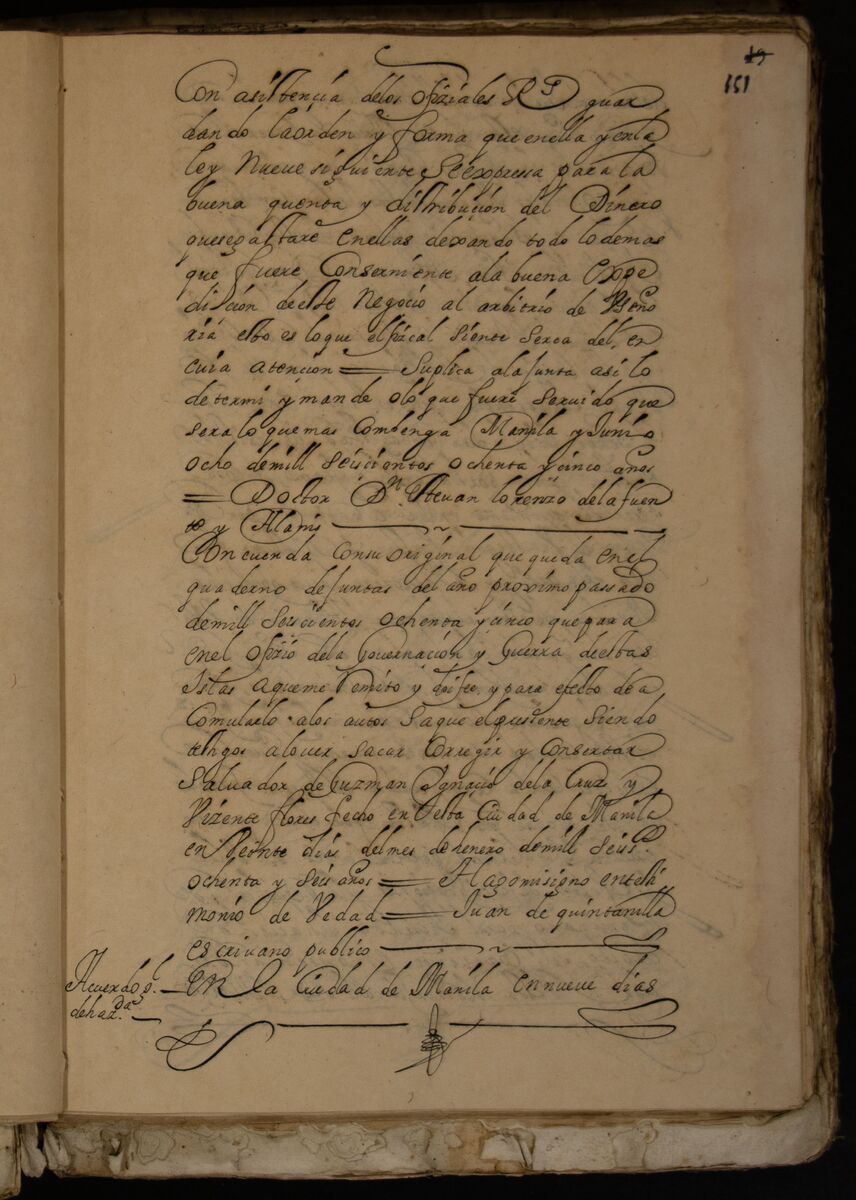 19
151
Con asistençia delos ofiziales Rs guar
dando laorden y forma que enella y enla
ley Nueve siguiente seexpressa para la
buena quenta y distribuçion del Dinero
quesegastare enellas dexando todo lodemas
que fuere Conserniente ala buena expe
diçion deeste Negoçio al arbitrio de Vseño
ria esto es loque elfiscal siente serca del, en
cuia atençion = Suplica alaJunta asi lo
determi y mande olo que fuere seruido que
sera lo quemas Combenga Manila y Junio
ocho demill seisçientos ochenta yçinco años
= Doctor Dn. Esteuan lorenzo delafuen
te y Alanis
Concuerda Consu original que queda enel
quaderno deJuntas del año proximo passado
demill seisçientos ochenta yçinco quepara
enel ofizio dela Gouernaçion y Guerra deestas
Islas aqueme Remito y para efecto de a
Comularlo alos autos saque elpresente siendo
testigos alover sacar Corregir y Consertar
Saluador de Guzman Ignaçio dela Cruz y
Vizente flores fecho en esta Ciudad de Manila
en Veinte dias delmes de henero demill seisso
ochenta y seis años = Hagomisigno entesti
monio de Verdad = Juan de quintanilla
escriuano publico
Acuerdo gl.
dehazda.
EN la Ciudad de Manila ennueve dias